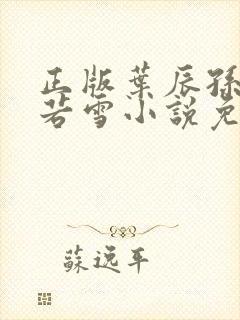 正版葉辰孫
若雪小説免
蘇逸平